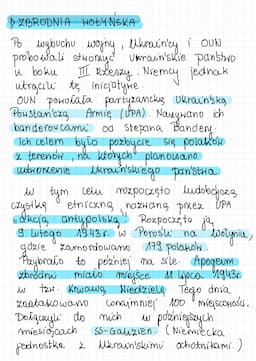 ZBRODNIA WOŁYŃSKA
Po wybuchu wojny, Ukraińcy i OUN
próbowali stworzyć ukraińskie państwo
u boku III Rzeszy. Niemcy jednak
utrącili tę inicjatywę.
OUN powołała partyzancką Ukraińską
Powstańczą Armię (UPA). Nazywano ich
banderowcami od Stepana Bandery.
Ich celem było pozbycie się polaków
z terenów, na których planowano
utworzenie ukraińskiego państwa.
W tym celu rozpoczęto ludobójczą
czystkę etniczną, nazwaną przez UPA
„akcją antypolską". Rozpoczęto ją
9 lutego 1943r. w Porośli na Wołyniu,
gdzie zamordowano 179 polaków.
Przybrało to później na sile. Apogeum
zbrodni miało miejsce 11 lipca 1943r.
w tzw. Krwawą Niedzielę. Tego dnia
zaatakowano conajmniej 100 miejscowości.
Dołączyli do nich w późniejszych
miesiącach SS-Galizien. (Niemiecka
jednostka z Ukraińskimi ochotnikami.)